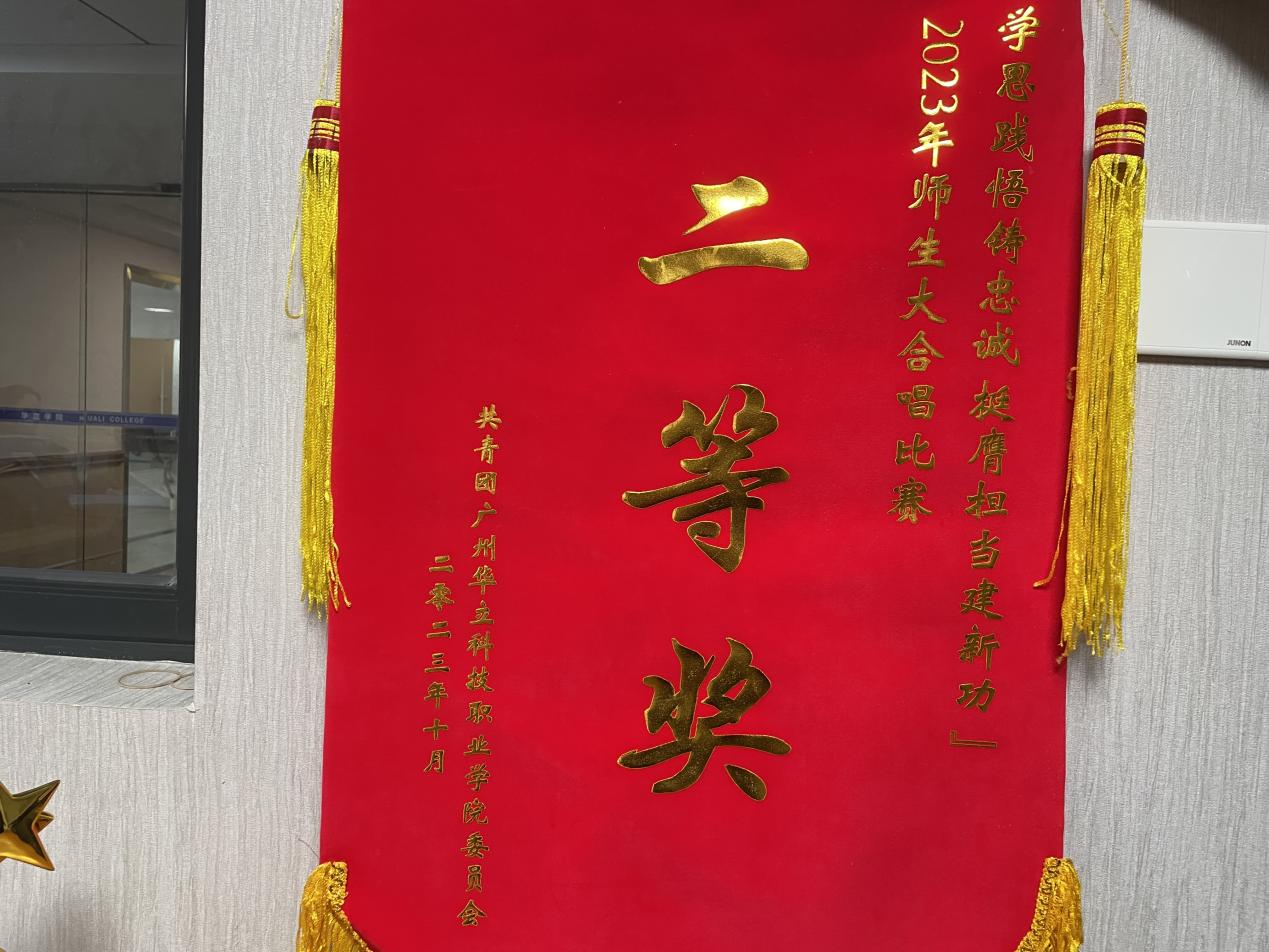 学思践悟铸忠诚 挺膺担当建新功』
2023年师生大合唱比赛
二等奖
共青团广州华立科技职业学院委员会
二零二三年十月
JUNON
华立学院 HUALI COLLEGE